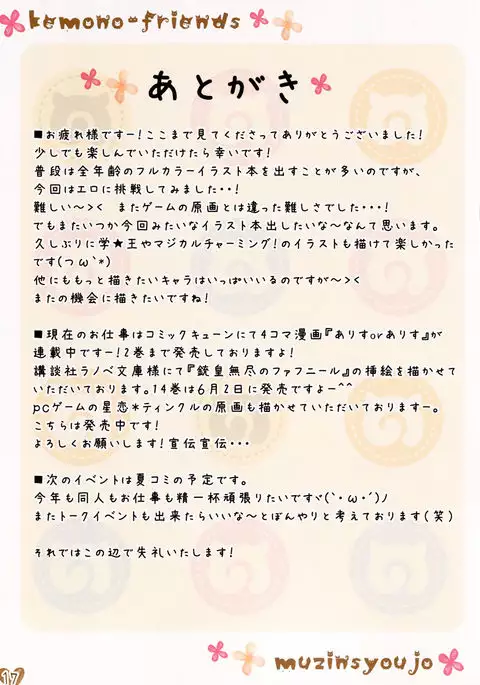 kemono-friends
あとがき
■お疲れ様ですー!ここまで見てくださってありがとうございました!
少しでも楽しんでいただけたら幸いです!
普段は全年齢のフルカラーイラスト本を出すことが多いのですが、
今回はエロに挑戦してみました・・!
難しい〜>< またゲームの原画とは違った難しさでした・・・!
でもまたいつか今回みたいなイラスト本出したいな〜なんて思います。
久しぶりに学★王やマジカルチャーミング!のイラストも描けて楽しかった
です(つω`*)
他にももっと描きたいキャラはいっぱいいるのですが〜><
またの機会に描きたいですね!
■現在のお仕事はコミックキューンにて4コマ漫画『ありすorありす』が
連載中ですー!2巻まで発売しておりますよ!
講談社ラノベ文庫様にて『銃皇無尽のファフニール』の挿絵を描かせて
いただいております。14巻は6月2日に発売ですよー^^
pcゲームの星恋*ティンクルの原画も描かせていただいておりますー。
こちらは発売中です!
よろしくお願いします!宣伝宣伝・・・
■次のイベントは夏コミの予定です。
今年も同人もお仕事も精一杯頑張りたいですヾ(`・ω・´)ノ
またトークイベントも出来たらいいな〜とぼんやりと考えております(笑)
それではこの辺で失礼いたします!
muzinsyoujo
17